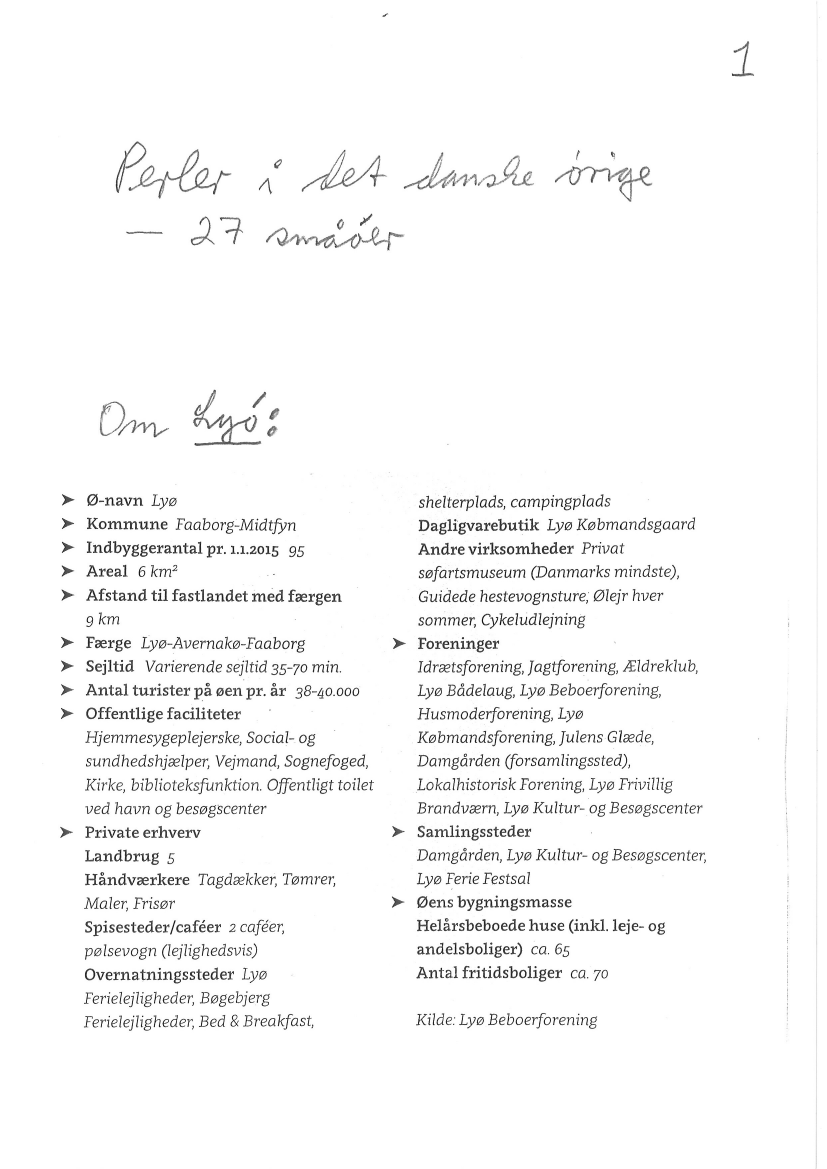 1
Perler i det danske ørige
— 27 småøer
Om Lyø:
➤ Ø-navn Lyø
➤ Kommune Faaborg-Midtfyn
➤ Indbyggerantal pr. 1.1.2015 95
➤ Areal 6 km²
➤ Afstand til fastlandet med færgen
9 km
➤ Færge Lyø-Avernakø-Faaborg
➤ Sejltid Varierende sejltid 35-70 min.
➤ Antal turister på øen pr. år 38-40.000
➤ Offentlige faciliteter
Hjemmesygeplejerske, Social- og
sundhedshjælper, Vejmand, Sognefoged,
Kirke, biblioteksfunktion. Offentligt toilet
ved havn og besøgscenter
➤ Private erhverv
Landbrug 5
Håndværkere Tagdækker, Tømrer,
Maler, Frisør
Spisesteder/caféer 2 caféer,
pølsevogn (lejlighedsvis)
Overnatningssteder Lyø
Ferielejligheder, Bøgebjerg
Ferielejligheder, Bed & Breakfast,
shelterplads, campingplads
Dagligvarebutik Lyø Købmandsgaard
Andre virksomheder Privat
søfartsmuseum (Danmarks mindste),
Guidede hestevognsture, Ølejr hver
sommer, Cykeludlejning
➤ Foreninger
Idrætsforening, Jagtforening, Ældreklub,
Lyø Bådelaug, Lyø Beboerforening,
Husmoderforening, Lyø
Købmandsforening, Julens Glæde,
Damgården (forsamlingssted),
Lokalhistorisk Forening, Lyø Frivillig
Brandværn, Lyø Kultur- og Besøgscenter
➤ Samlingssteder
Damgården, Lyø Kultur- og Besøgscenter,
Lyø Ferie Festsal
➤ Øens bygningsmasse
Helårsbeboede huse (inkl. leje- og
andelsboliger) ca. 65
Antal fritidsboliger ca. 70
Kilde: Lyø Beboerforening